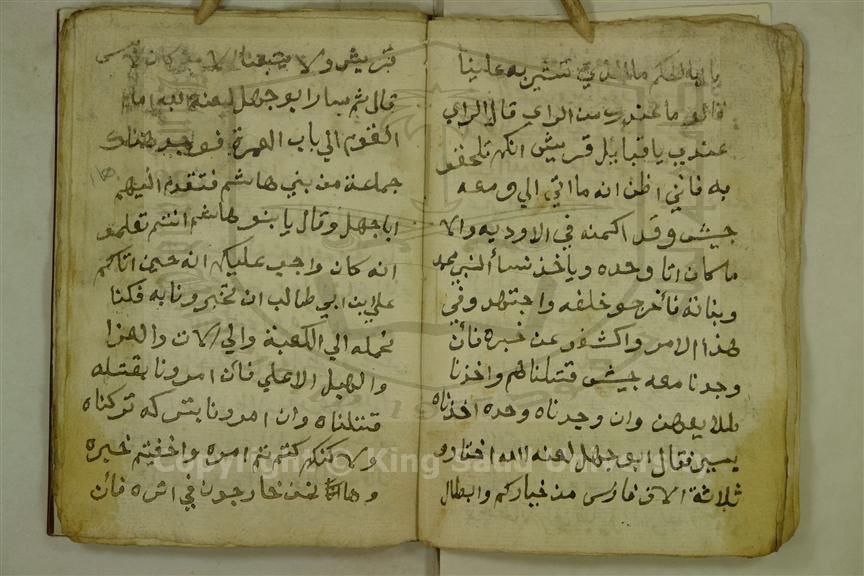 يا ابه الحكم ما الذي تشير به علينا
قالو ما عندك من الراي قال الراي
عندي يا قبايل قريش انكم تلحقو
به فاني اظن انه ما اتي الي ومعه
جيش وقد اكمنه في الاوديه والا
ما كان اتا وحده وياخذ نسأ النبي محمد
وبناته فأخرجو خلفه واجتهدو في
هذا الامر واكشفو عن خبره فأن
وجدنا معه جيش قتلناهم واخذنا
وان وجدناه وحده اخذناه
يسير فقال ابو جهل لعنه الله اختارو
ثلاثة الاف فارس من خياركم وابطال
قريش ولا يتبعنا الا من كان
قال ثم سار ابو جهل لعنه الله امام
القوم الي باب العمرة فوجد هناك
جماعة من بني هاشم فتقدم اليهم
ابا جهل وقال يا بنو هاشم انتم تعلمو
انه كان واجب عليكم انه حين اتاكم
علي ابن ابي طالب ان تخبرونا به فكنا
نحمله الي الكعبة والي الات والعزا
والهبل الاعلي فأن امرونا بقتله
قتلناه وان امرونا بتركه تركناه
ولاكنكم كتمتم امره واخفيتم خبره
وها نحن خارجون في اثره فأن
Copyright © King Saud University